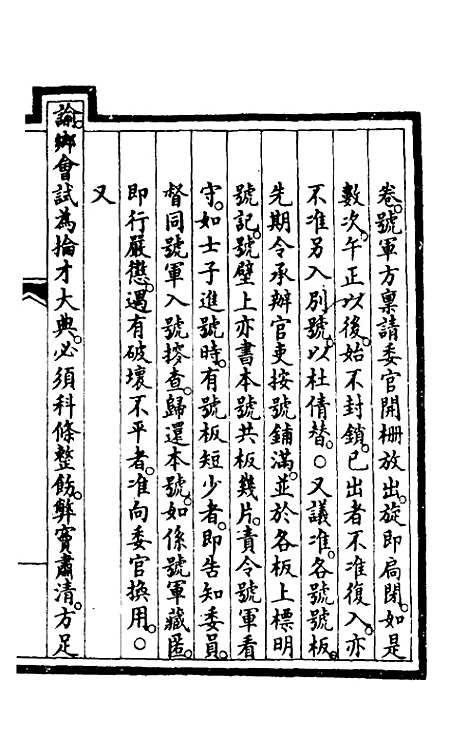 卷。號軍方稟請委官開柵放出。旋即扃閉。如是
數次。午正以後。始不封鎖。已出者不准復入。亦
不准另入別號。以杜倩替。○又議准。各號號板。
先期令承辦官吏按號鋪滿。並於各板上標明
號記。號壁上亦書本號共板幾片。責令號軍看
守。如士子進號時。有號板短少者。即告知委員。
督同號軍入號搜查。歸還本號。如係號軍藏匿。
即行嚴懲。遇有破壞不平者。准向委官換用。○
又
諭。鄉會試為掄才大典。必須科條整飭。弊竇肅清。方足